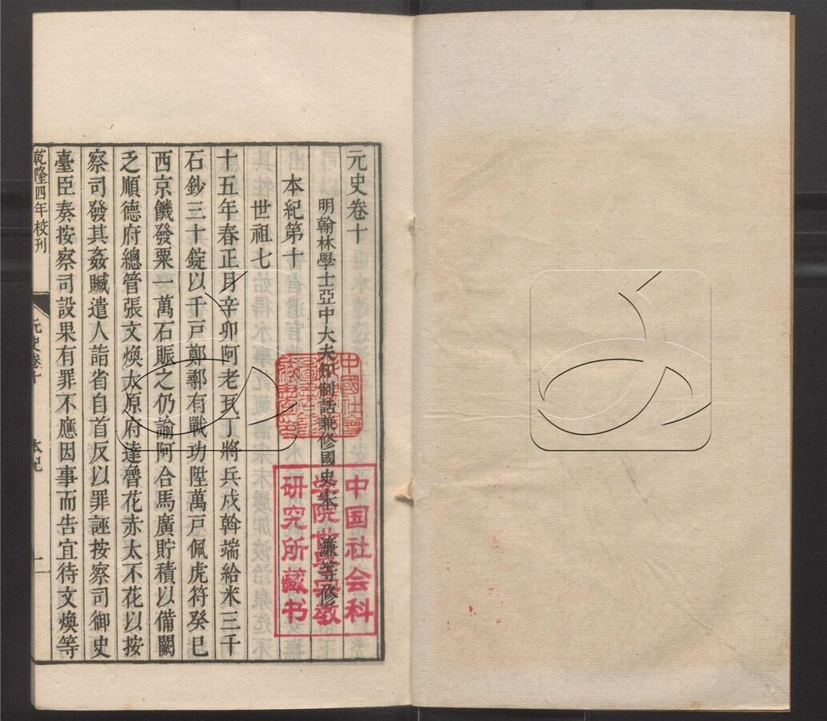 元史卷十
明翰林學士亞中大夫知制誥兼修國史宋濂等修
本紀第十
世祖七
十五年春正月辛卯阿老瓦丁將兵戍斡端給米三千
石鈔三十錠以千戶鄭鄩有戰功陞萬戶佩虎符癸巳
西京饑發粟一萬石賑之仍諭阿合馬廣貯積以備闕
乏順德府總管張文煥太原府達魯花赤太不花以按
察司發其姦贓遣人詣省自首反以罪誣按察司御史
臺臣奏按察司設果有罪不應因事而告宜待文煥等
乾隆四年校刊
元史卷十
本紀
一
中國社會
中国社会科
学院世界宗教
研究所藏书